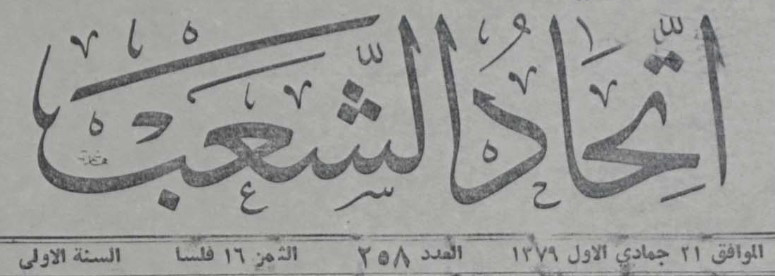 اتحاد الشعب
الموافق ٢١ جمادي الاول ١٣٧٩ العدد ٢٥٨ الثمن ١٦ فلسا السنة الاولى